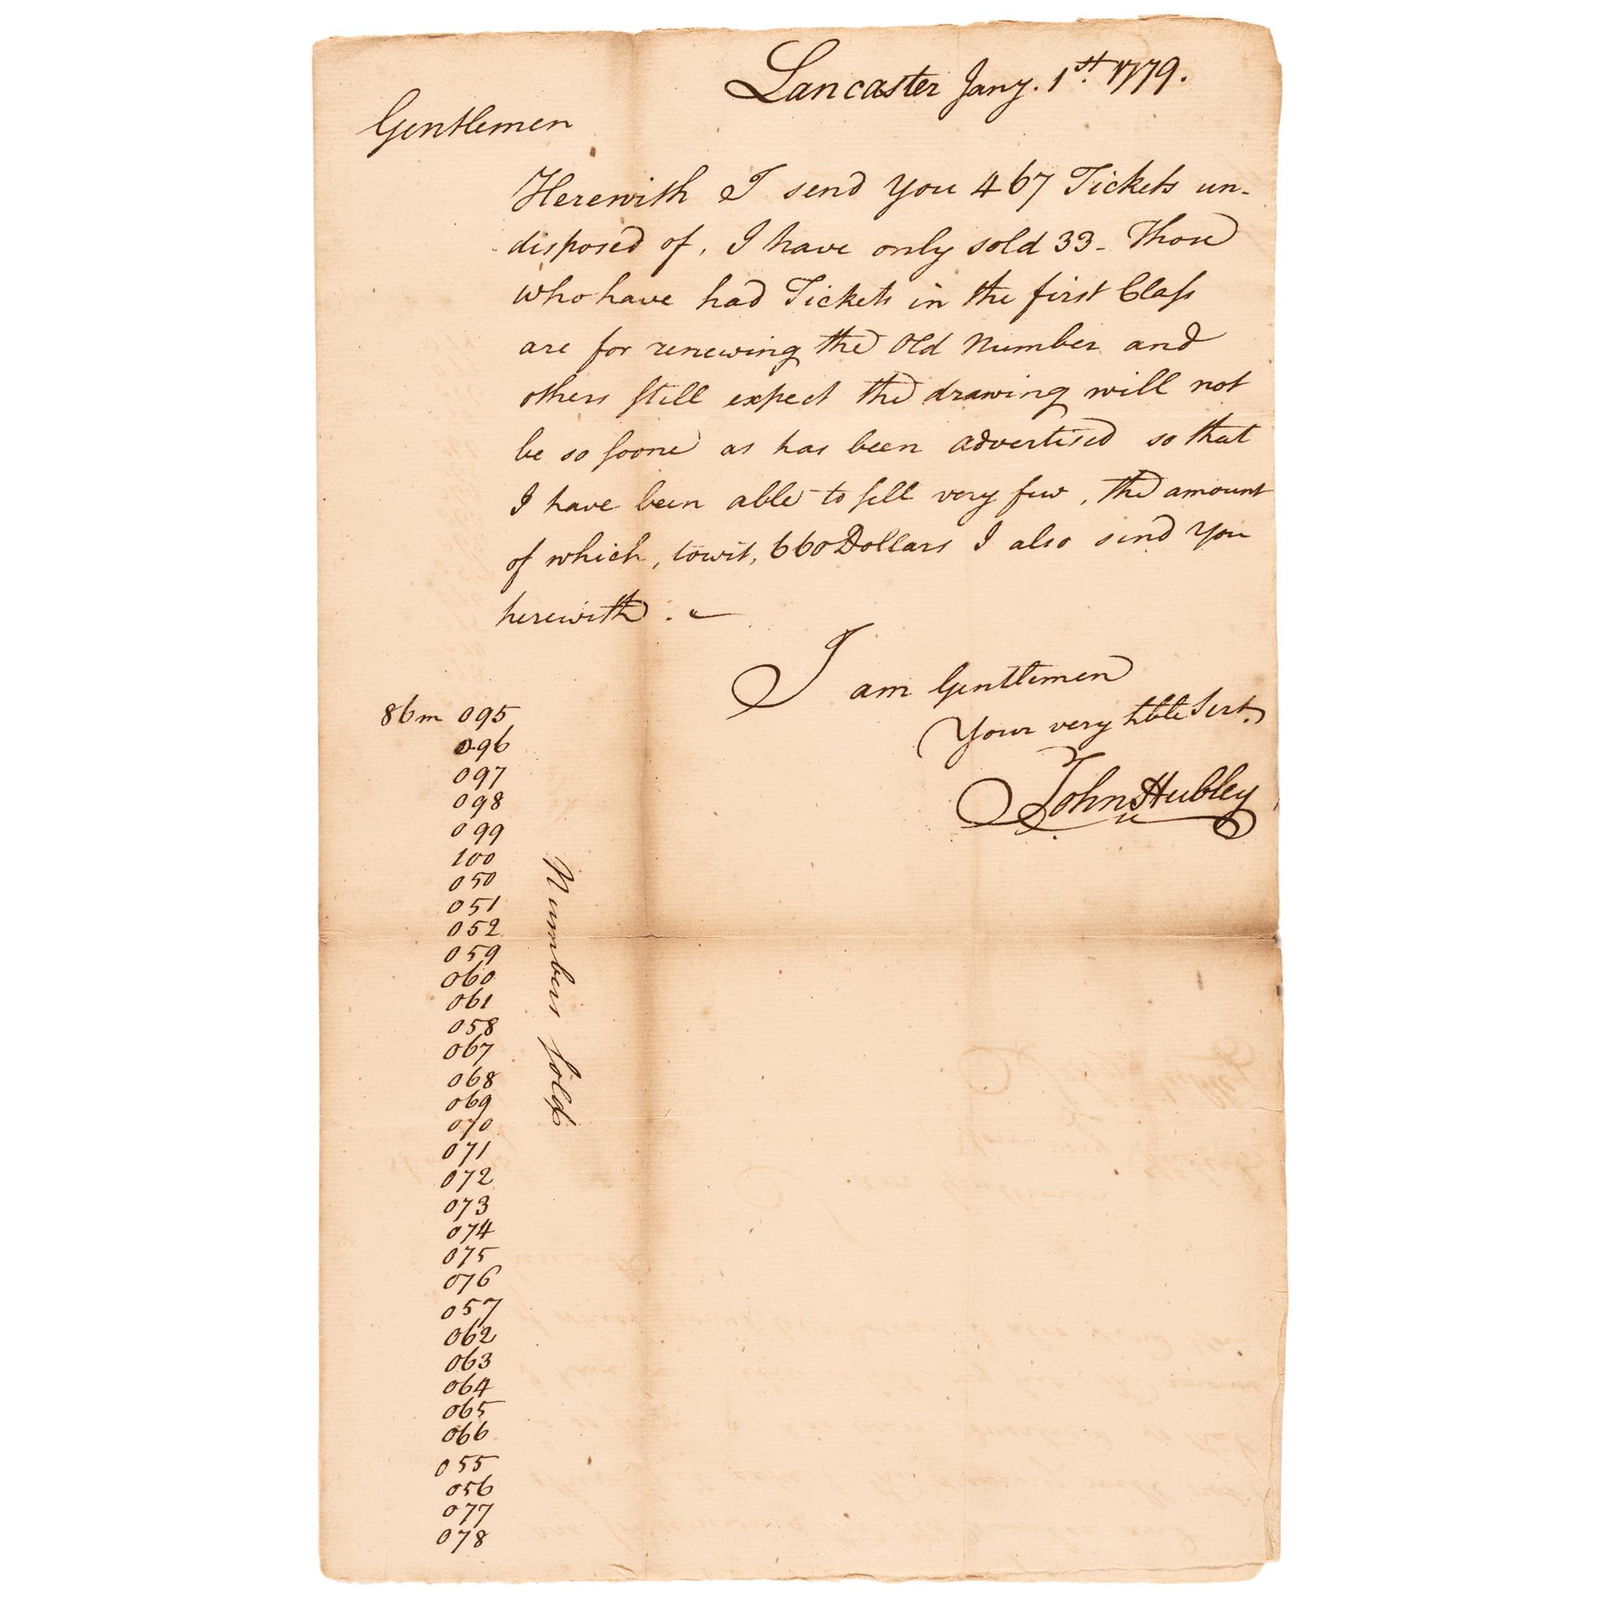 Lancaster Jany. 1st. 1779.
Gentlemen
Herewith I send you 467 Tickets un-
disposed of, I have only sold 33 - Those
who have had Tickets in the first Class
are for renewing the Old Number and
others still expect the drawing will not
be so soone as has been advertised so that
I have been able to sell very few, the amount
of which, towit, 660 Dollars I also send you
herewith. -
I am Gentlemen
Your very hble Sert.
John Hubley
86m 095
096
097
098
099
100
050
051
052
059
060
061
058
067
068
069
070
071
072
073
074
075
076
057
062
063
064
065
066
055
056
077
078
Numbers sold